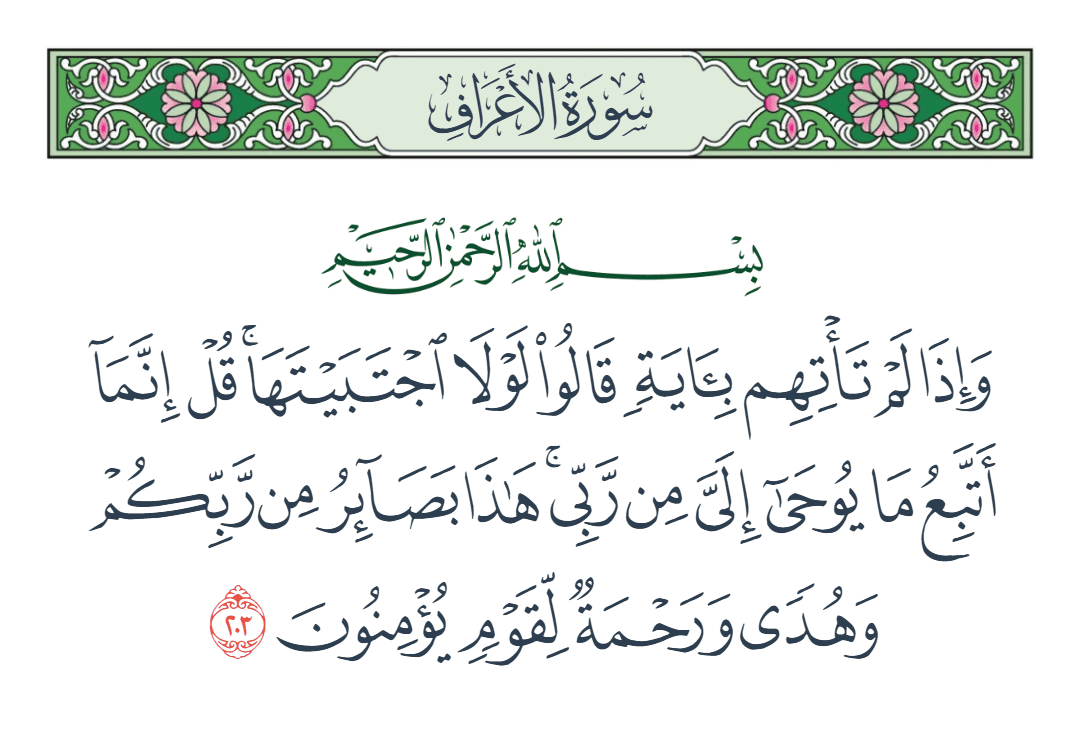 سُورَةُ الأَعْرَافِ
بِسْمِ ٱللَّهِ ٱلرَّحْمَٰنِ ٱلرَّحِيمِ
وَإِذَا لَمْ تَأْتِهِم بِـَٔايَةٍ قَالُوا۟ لَوْلَا ٱجْتَبَيْتَهَا ۚ قُلْ إِنَّمَآ
أَتَّبِعُ مَا يُوحَىٰٓ إِلَىَّ مِن رَّبِّى ۚ هَٰذَا بَصَآئِرُ مِن رَّبِّكُمْ
وَهُدًى وَرَحْمَةٌ لِّقَوْمٍ يُؤْمِنُونَ ٢٠٣